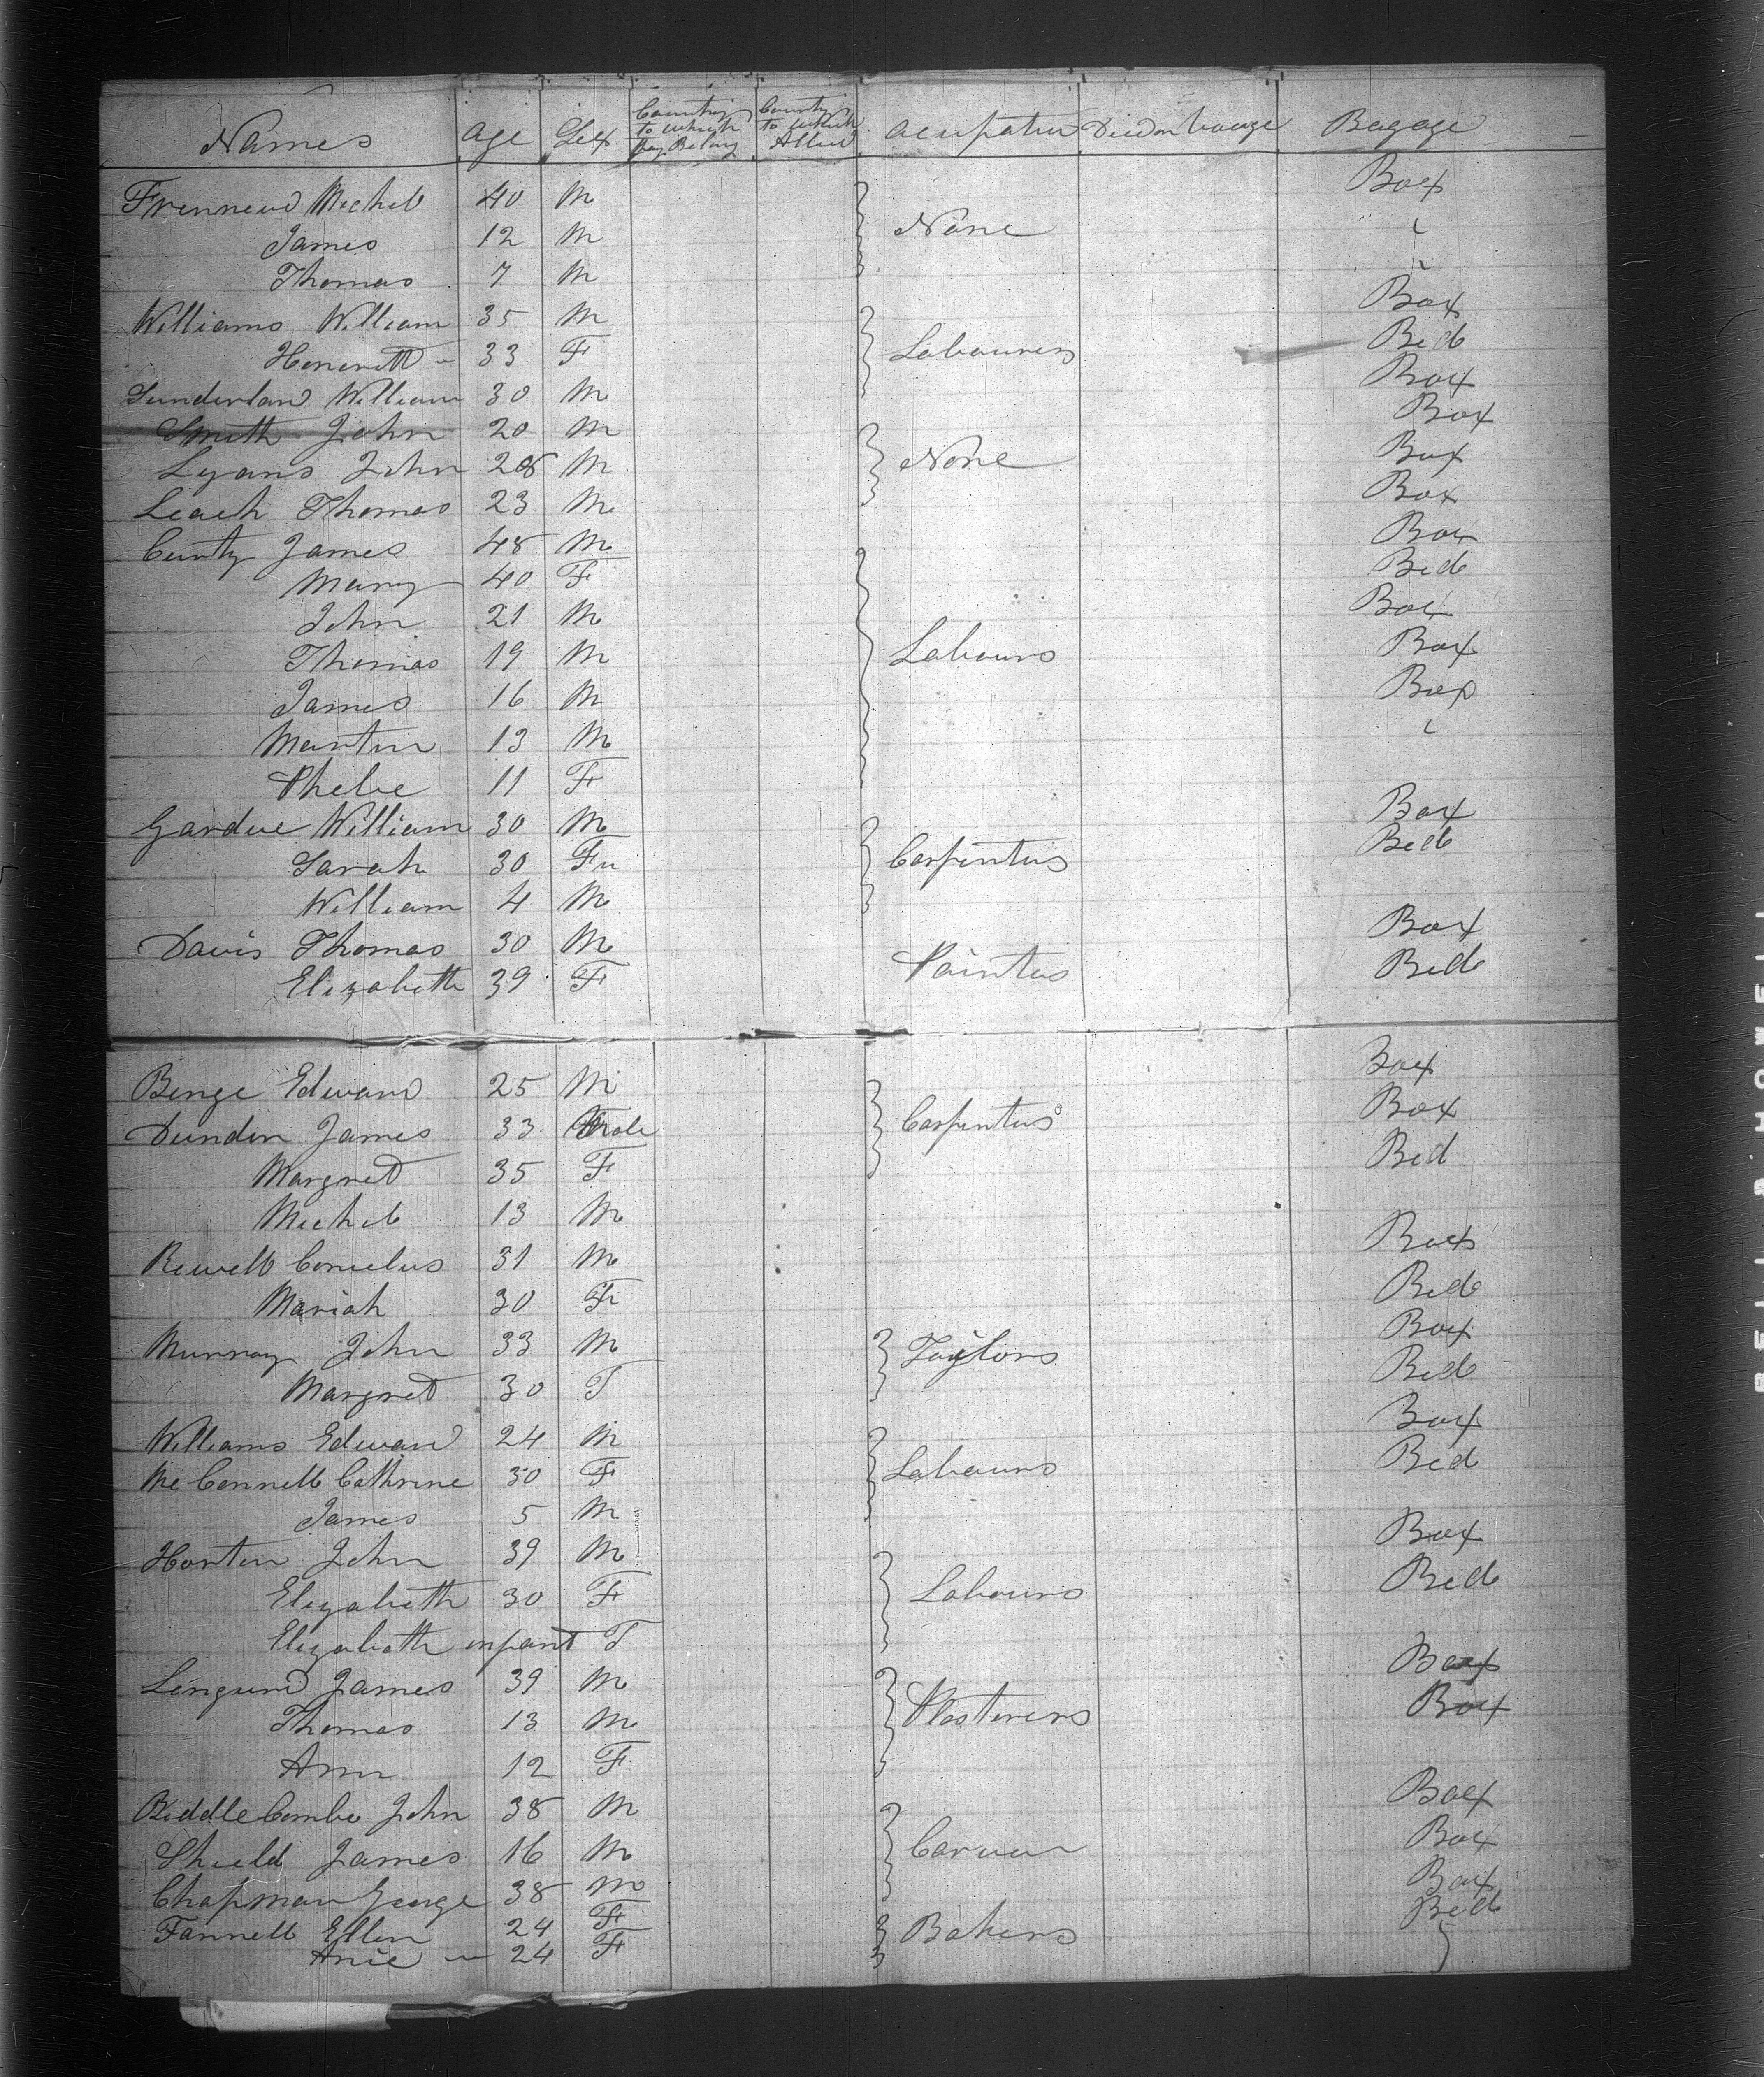 Names Age Sex Country to which they Belong Country to which Allied Acupation Died on Voyage Bagage
Michel 40 M Box
James 12 M None
Thomas 7 M
Williams William 35 M Box
33 F Labourers Bed
Sunderland William 30 M Box
Smith John 20 M Box
Lyans John 28 M None Box
Leach Thomas 23 M Box
James 48 M Box
Mary 40 F Bed
John 21 M Box
Thomas 19 M Labours Box
James 16 M Box
Martin 13 M
Phebe 11 F
William 30 M Box
Sarah 30 F Carpinters Bed
William 4 M
Davis Thomas 30 M Box
Elizabeth 39 F Painters Bed
Benge Edward 25 M Box
Dunden James 33 Male Carpinters Box
Margret 35 F Bed
Michel 13 M
Cornelus 31 M Box
Mariah 30 F Bed
Murray John 33 M Taylors Box
Margret 30 F Bed
Williams Edward 24 M Box
Mc Connell Cathrine 30 F Labours Bed
James 5 M
Horten John 39 M Box
Elizabeth 30 F Labours Bed
Elizabeth infant F
James 39 M Box
Thomas 13 M Plasterers Box
Ann 12 F
Biddle Combe John 38 M Box
Shield James 16 M Carver Box
Chapman George 38 M Box
Fannell Ellen 24 F Bakers Bed
Anie 24 F